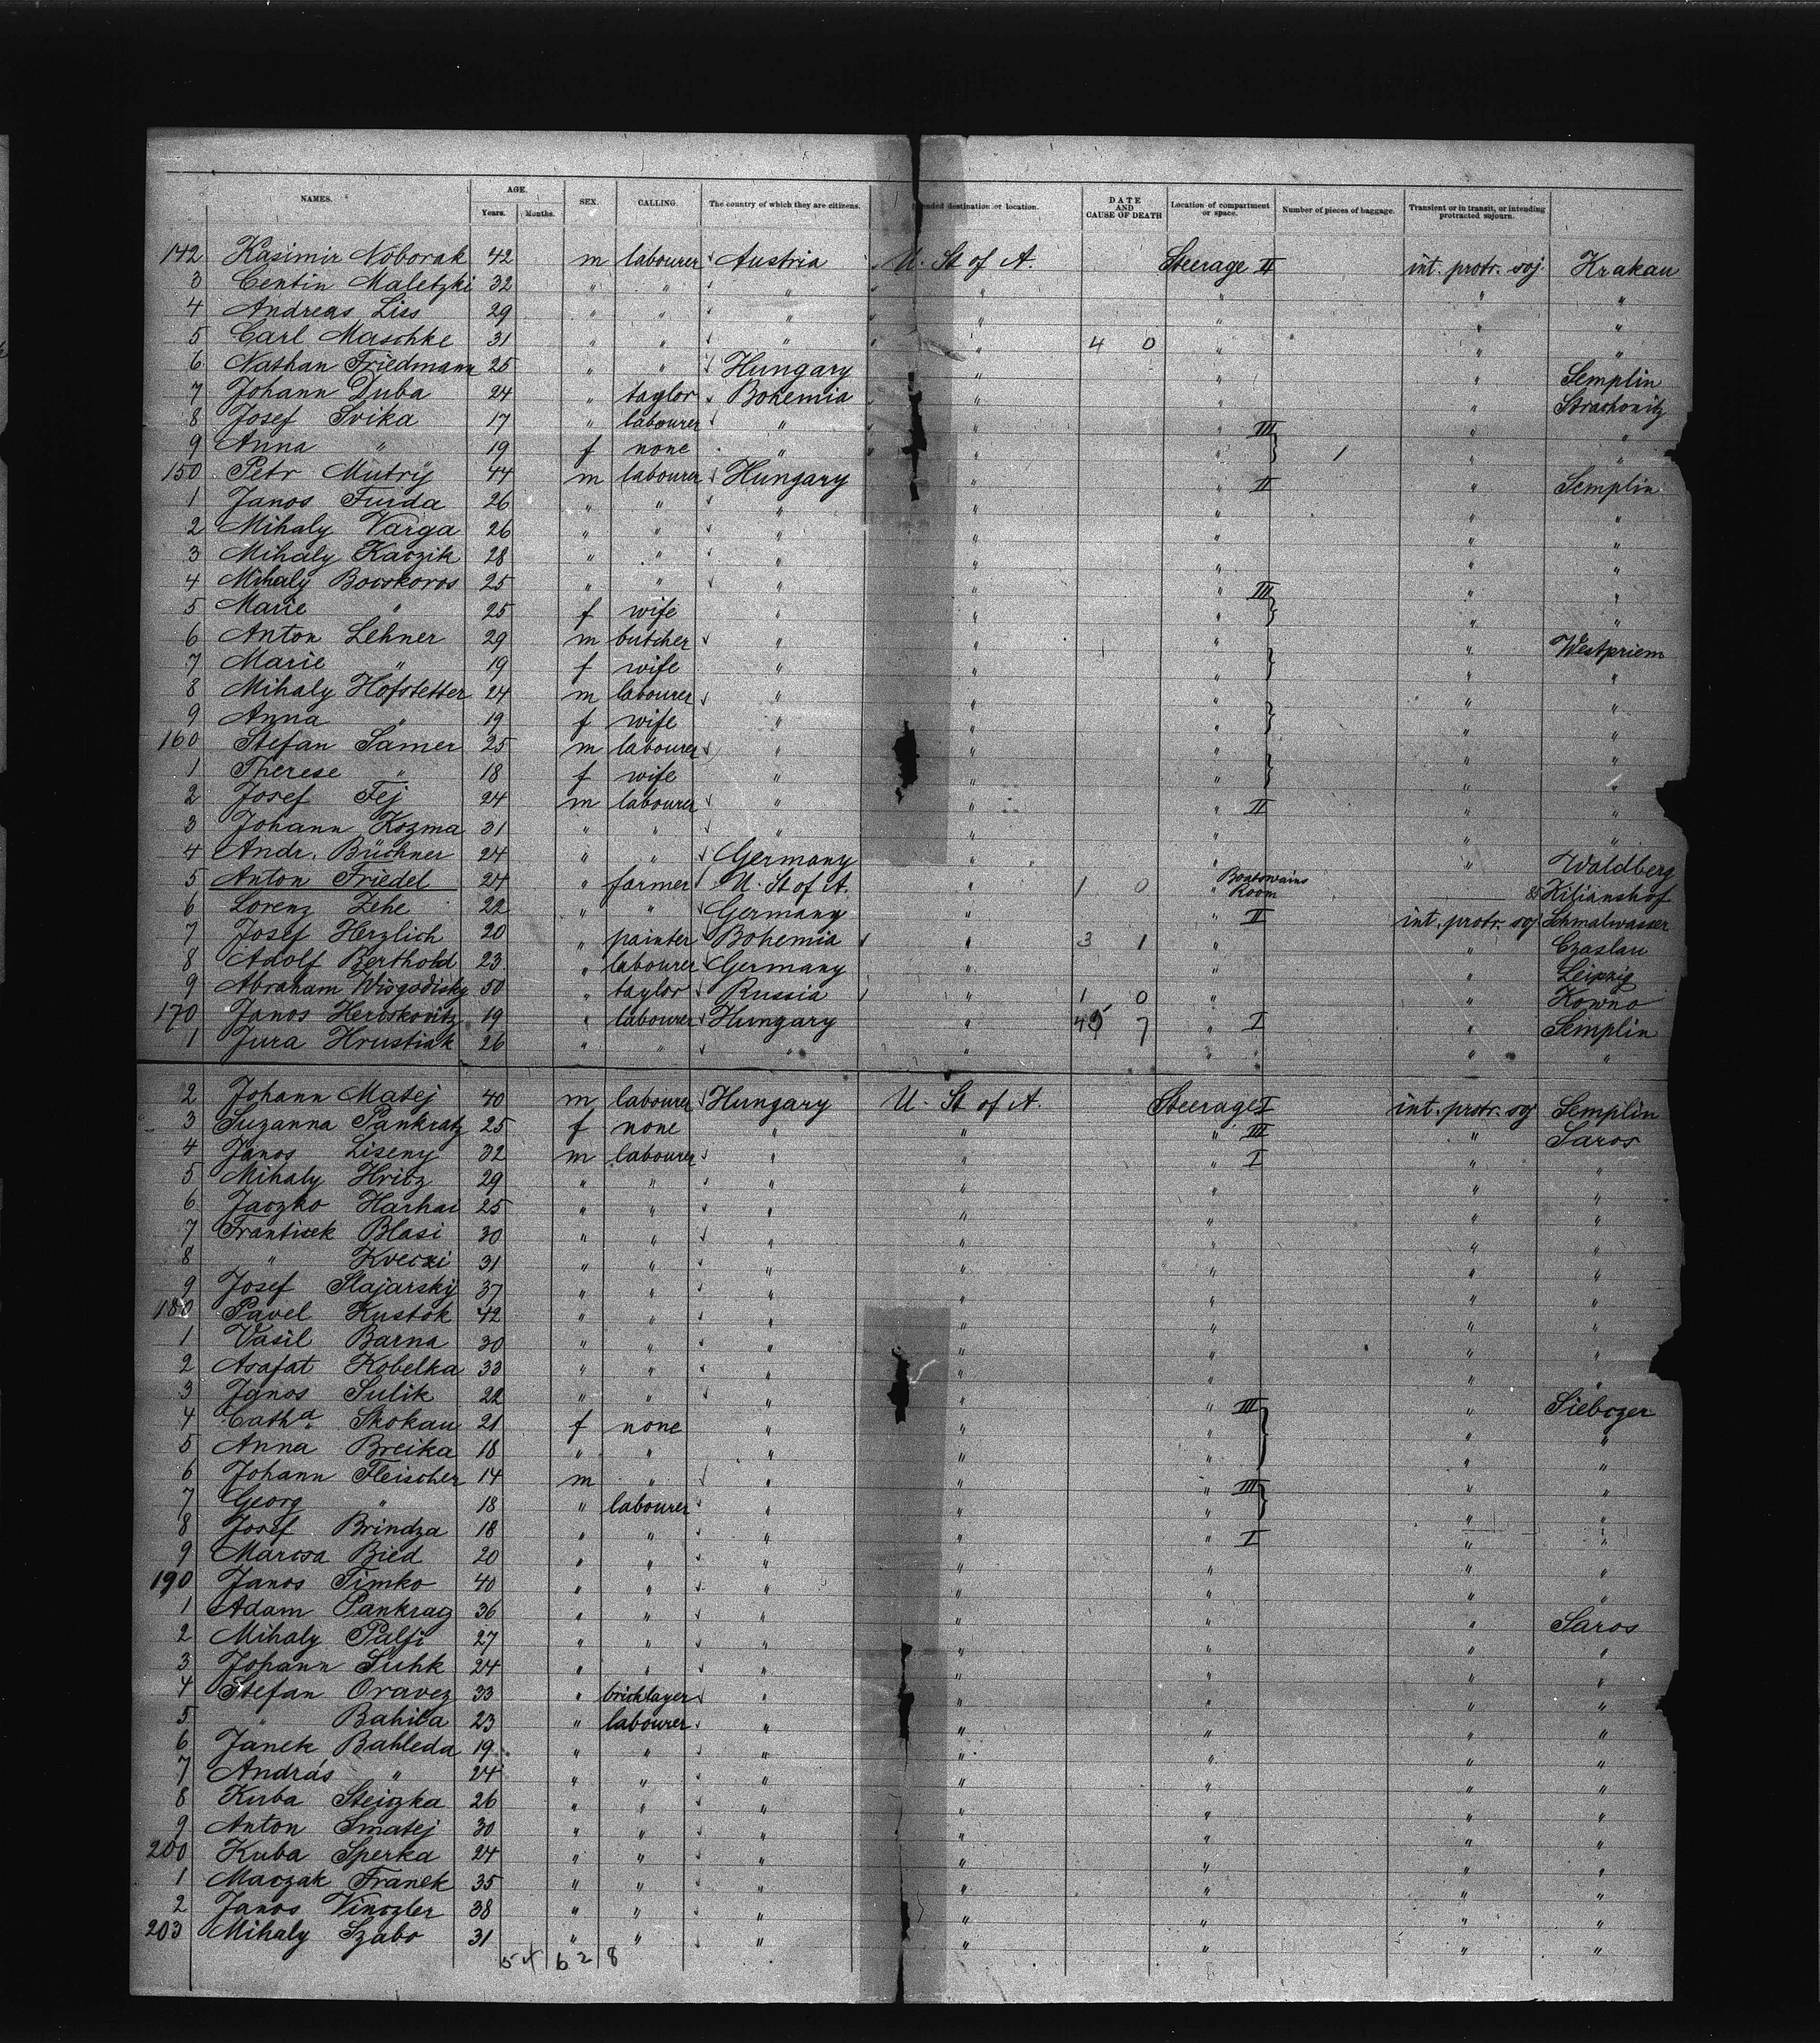 NAMES. AGE. Years. Months. SEX. CALLING. The country of which they are citizens. ended destination or location. DATE AND CAUSE OF DEATH Location of compartment or space. Number of pieces of baggage. Transient or in transit, or intending protracted sojourn.
142 Kasimir Noborak 42 m labourer Austria U. St of A. Steerage II int. protr. soj. Krakau
3 Centin Maletzki 32 " " " " " " "
4 Andreas Liss 29 " " " " " " "
5 Carl Maschke 31 " " " " 4 0 " " "
6 Nathan Friedmann 25 " " Hungary " " " Semplin
7 Johann Duba 24 " taylor Bohemia " " " Strachonitz
8 Josef Svika 17 " labourer " " " III " "
9 Anna " 19 f none " " " 1 " "
150 Petr Mutrij 44 m labourer Hungary " " II " Semplin
1 Janos Furda 26 " " " " " " "
2 Mihaly Varga 26 " " " " " " "
3 Mihaly Kaczik 28 " " " " " " "
4 Mihaly Bocskoros 25 " " " " " III " "
5 Marie " 25 f wife " " " " "
6 Anton Lehner 29 m butcher " " " " Westpriem
7 Marie " 19 f wife " " " " "
8 Mihaly Hofstetter 24 m labourer " " " " "
9 Anna " 19 f wife " " " " "
160 Stefan Samer 25 m labourer " " " " "
1 Therese " 18 f wife " " " " "
2 Josef Fej 24 m labourer " " " II " "
3 Johann Kozma 31 " " " " " " "
4 Andr. Büchner 24 " " Germany " " " Waldberg
5 Anton Friedel 24 " farmer U. St of A. 1 0 " Boatswains Room Kilianshof
6 Lorenz Zehe 22 " " Germany " " II int. protr. soj Schmalwasser
7 Josef Herzlich 20 " painter Bohemia " 3 1 " " Czaslau
8 Adolf Berthold 23 " labourer Germany " " " Leipzig
9 Abraham Wisgodisky 50 " taylor Russia " 1 0 " " Kowno
170 Janos Herbskovitz 19 " labourer Hungary " 45 7 " I " Semplin
1 Jura Hrustiak 26 " " " " " " "
2 Johann Matej 40 m labourer Hungary U. St of A. Steerage I int. protr. soj Semplin
3 Suzanna Pankratz 25 f none " " " III " Saros
4 Janos Liseny 32 m labourer " " " I " "
5 Mihaly Hritz 29 " " " " " " "
6 Jaczko Harhai 25 " " " " " " "
7 Frantisek Blasi 30 " " " " " " "
8 " Kveczi 31 " " " " " " "
9 Josef Stajarsky 37 " " " " " " "
180 Pavel Kustok 42 " " " " " " "
1 Vasil Barna 30 " " " " " " "
2 Asafat Kobelka 33 " " " " " " "
3 Janos Sulik 22 " " " " " " "
4 Catha Skokau 21 f none " " " III " Siebczer
5 Anna Breika 18 " " " " " " "
6 Johann Fleischer 14 m " " " " III " "
7 Georg " 18 " labourer " " " " "
8 Josef Brindza 18 " " " " " I " "
9 Marcsa Bied 20 " " " " " " "
190 Janos Timko 40 " " " " " " "
1 Adam Pankracz 36 " " " " " " Saros
2 Mihaly Palfi 27 " " " " " " "
3 Johann Suhk 24 " " " " " " "
4 Stefan Oravez 33 " bricklayer " " " " "
5 " Bahila 23 " labourer " " " " "
6 Janek Bahleda 19 " " " " " " "
7 András " 24 " " " " " " "
8 Kuba Steiczka 26 " " " " " " "
9 Anton Smatej 30 " " " " " " "
200 Kuba Sperka 24 " " " " " " "
1 Maczak Franek 35 " " " " " " "
2 Janos Vinczler 38 " " " " " " "
203 Mihaly Szabo 31 " " " " " " "
54 62 8